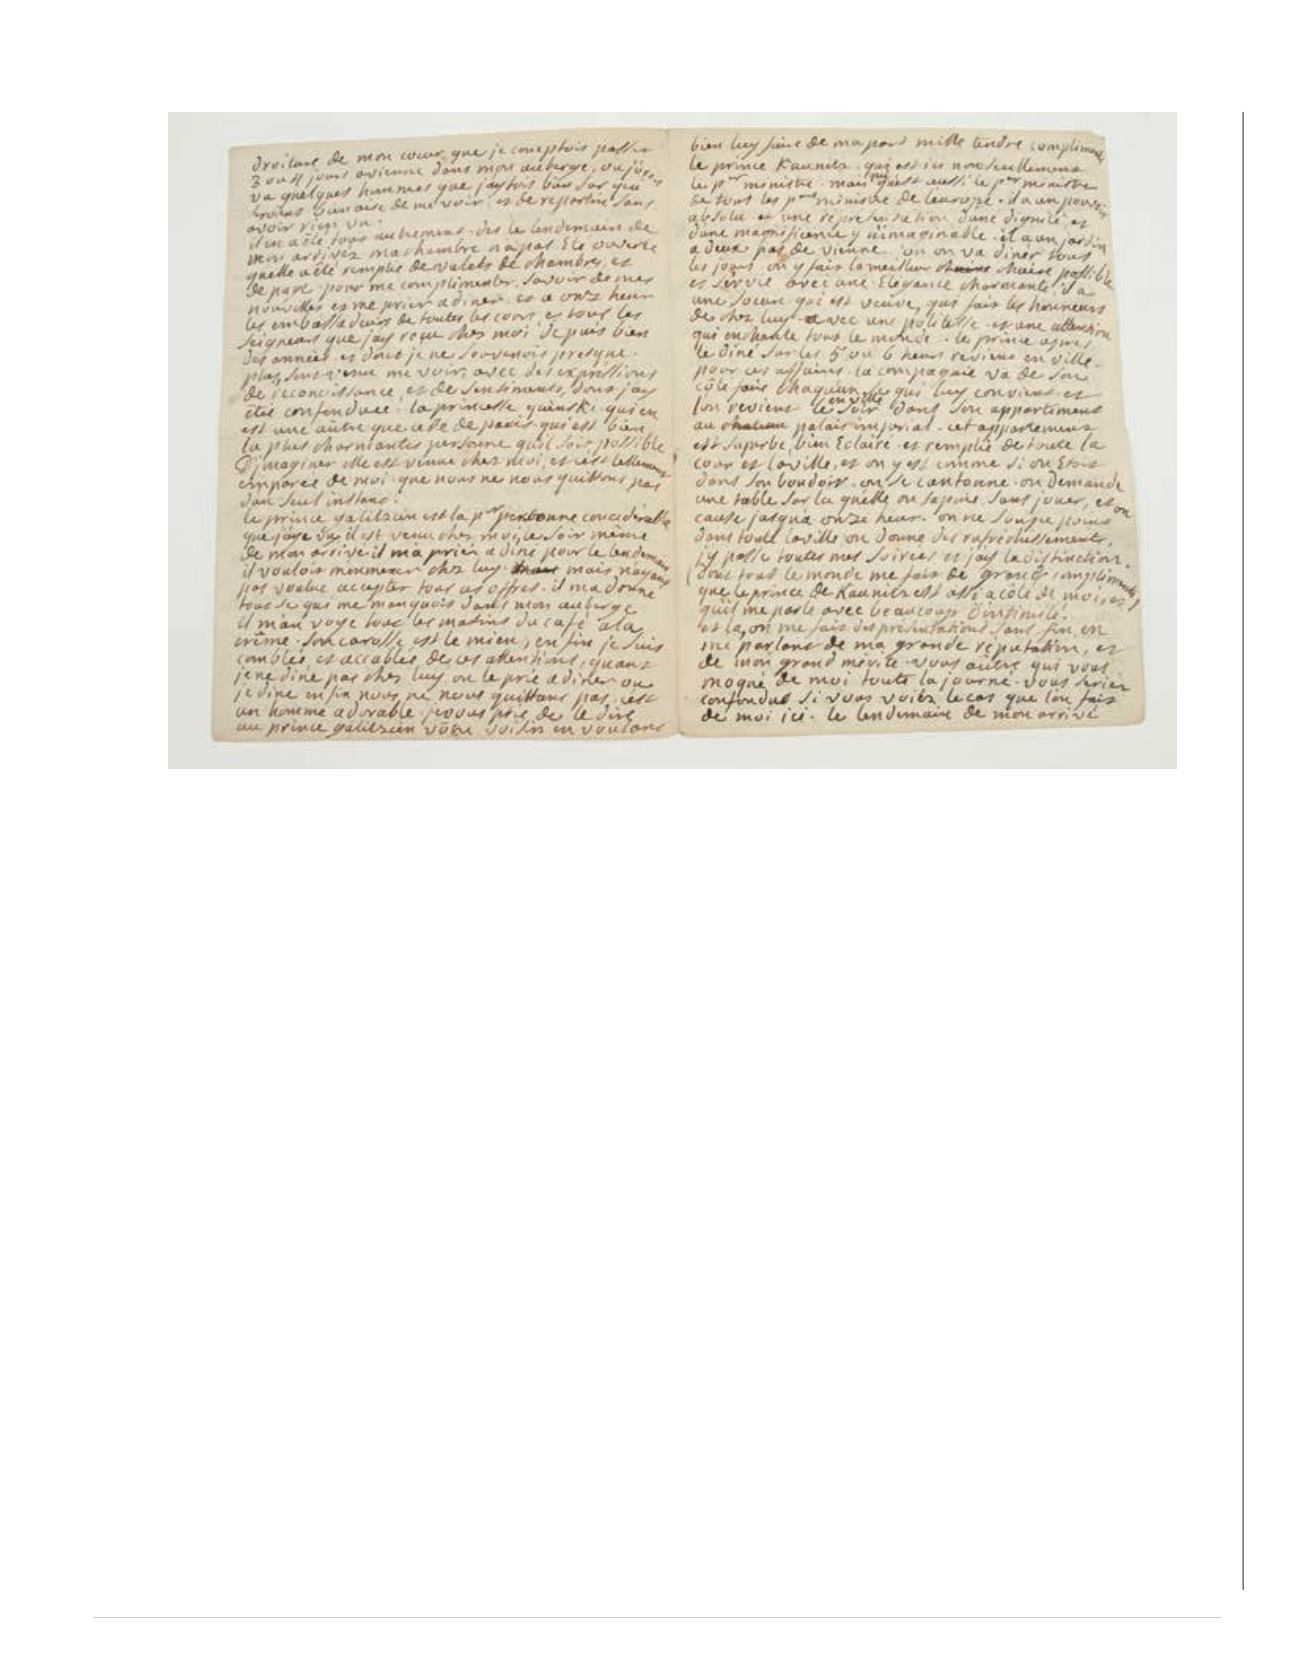 droiture de mon cœur, que je comptois passer
3 ou 4 jours a vienne dans mon auberge, ou j'
va quelques hommes que j'aytois bien sor qui
seroient bien aise de me voir, et de repartire sans
avoir rien vu.
il en a été tous autrement. des le lendemain de
mon arrivez ma chambre n'a pas Eté ouverte
quelle a été remplie de valets de chambres, et
de page pour me complimenter, savoir de mes
nouvelles et me prier a diner. et a onze heur
les embassadeurs de toutes les cours, et tous les
seigneurs que jay reçue chez moi depuis bien
des années et dont je ne souvenois presque
plus, sont venue me voir, avec des expréssions
de reconoissance, et de sentiments, dont jay
étié confondue. la princesse quinski qui en
est une autre que celle de paris qui est bien
la plus charmantes personne quil soit possible
D'jmaginer elle est venue chez moi, et c'est tellement
emparée de moi que nous ne nous quittons pas
d'un seul instant.
le prince galitzien est la p.er personne concidérable
que jaye vu, il est venu chez moi, le soir même
de mon arrivé il m'a prier a dine pour le lendemain
il vouloit m'emmener chez luy mais n'ayant
pas voulue accepter tous ces offres. il ma donné
tous se qui me manquois dans mon auberge
il m'an voye tous les matins du café a la
crême. son carosse est le mien, en fin je suis
comblés, et accablés de ces attentions, quant
je ne dine pas chez luy on le prie a diner ou
je dine enfin nous ne nous quittons pas, c'est
un homme adorable. je vous prie de le dire
au prince galitzien votre voisin en voulant
bien luy faire de ma part mille tendre compliments
le prince Kaunitz. qui est ici non seullement
le p.er ministre. mais qui est aussi le p.er ministre
de tous les p.ers ministre de leurope. il a un pouvoir
absolu et une représentation d'une dignité, et
d'une magnificence y n'imaginable. il a un jardin
a deux pas de vienne ou on va diner tous
les jours on y fais la meilleur chaire possible
et servie avec une Elégance charmante. il a
une soeur qui est veuve, qui fais les honneurs
de chez luy avec une politesse et une attention
qui enchante tous le monde. le prince apres
le diné sur les 5 ou 6 heurs reviens en ville
pour ces affaires. la compagnie va de son
côté fair chaquun se qui luy conviens et
lon reviens le soir en ville dans son appartement
au palais imperial. cet appartement
est superbe, bien Eclairé et remplie de toute la
cour et la ville, et on y est comme si on Etoit
dans son boudoir. on se cantonne. on demande
une table sur la quelle on sapuie sans jouer, et on
cause jusqua onze heur. on ne soupe point
dans toute la ville on donne des rafréchissements.
j'y passe toutes mes soirées et jay la distinction.
(dont tous le monde me fais de grands compliments)
que le prince de Kaunitz est assi a côte de moi, et
quil me parle avec beaucoup d'intimité.
et la, on me fais des présentations sans fin, en
me parlant de ma grande réputation, et
de mon grand mérite. vous autre qui vous
moqué de moi toute la journe. vous seriez
confondue si vous voiéz le cas que lon fais
de moi ici. le lendemain de mon arrivé